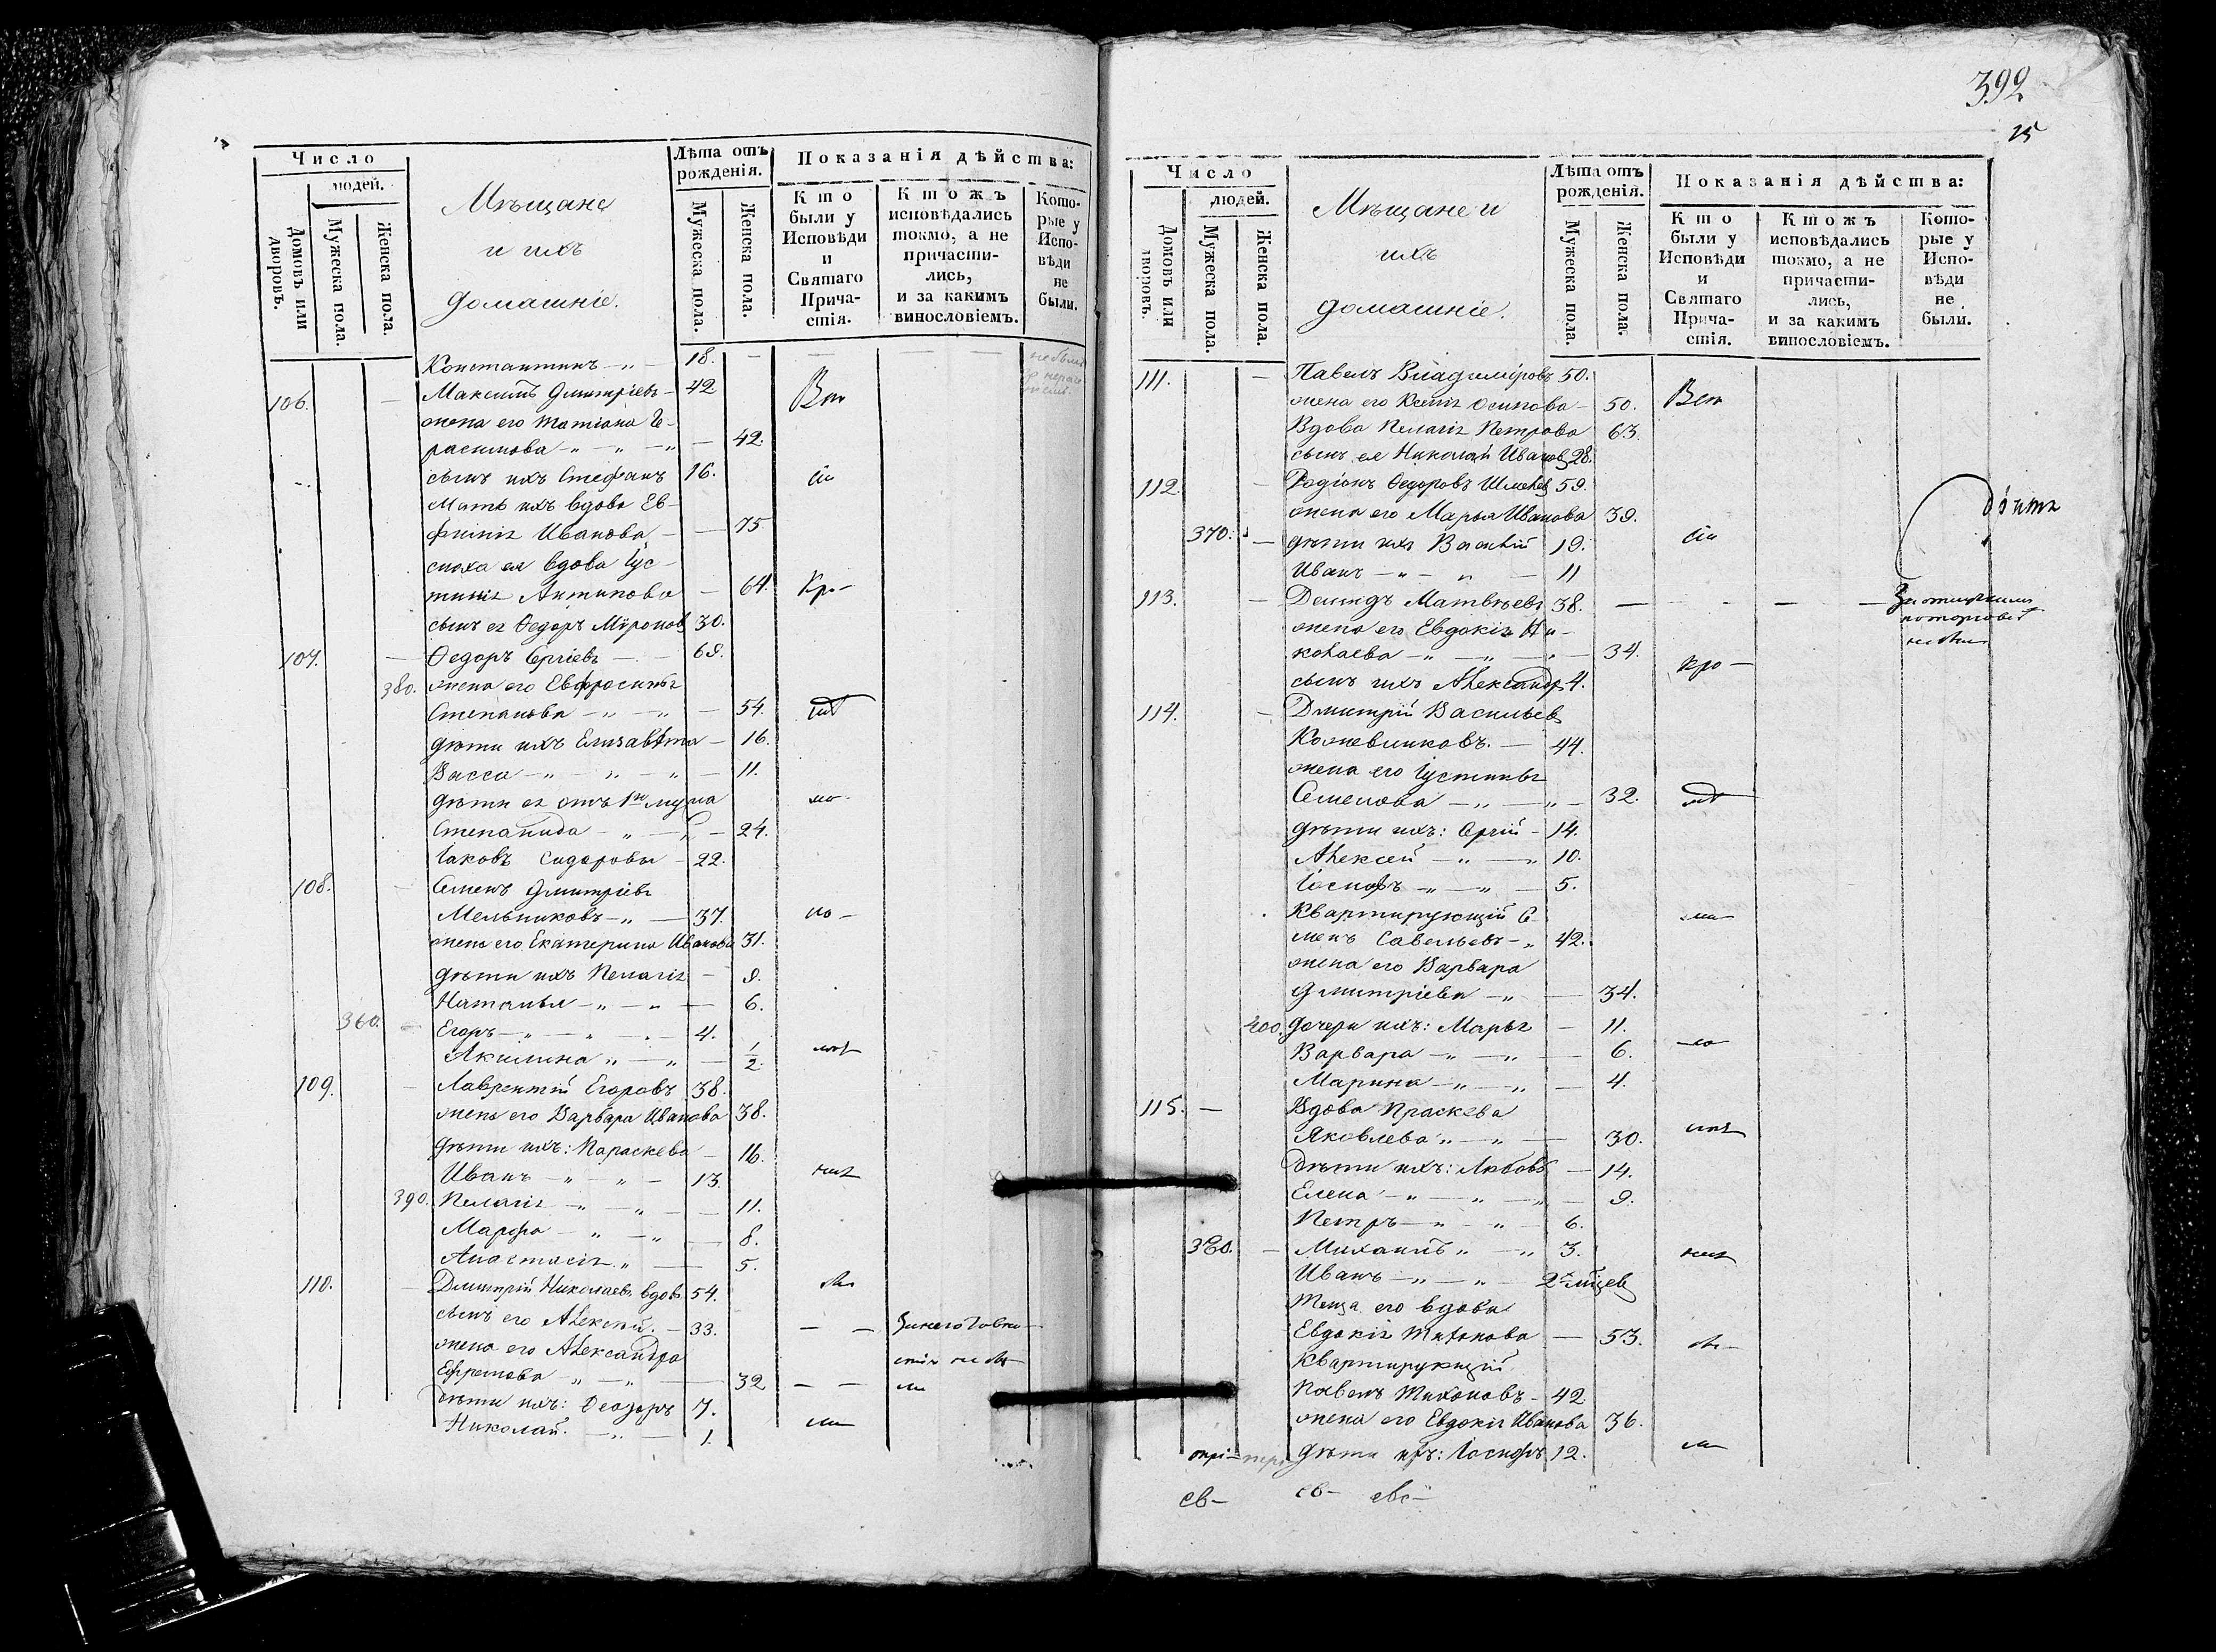 Число
людей.
Домовъ или дворовъ.
Мужеска пола.
Женска пола.
Мѣщане
и ихъ
домашніе.
Лѣта отъ рожденія.
Мужеска пола.
Женска пола.
Показанія дѣйства:
Кто были у Исповѣди и Святаго Прича-стія.
Ктожъ исповѣдались токмо, а не причасти-лись, и за какимъ винословіемъ.
Кото-рые у Испо-вѣди не были.
Константинъ 18.
106. Максимъ Дмитріевъ 42
жена его Татіана Ге-
расимова 42.
сынъ ихъ Стефанъ 16.
Мать ихъ вдова Ев-
фимія Иванова 75
сноха ея вдова Іус-
тинія Антипова 64.
сынъ ея Ѳедоръ Мѵроновъ 30.
107. Ѳедоръ Сергіевъ 68.
380. жена его Евфросинія
Степанова 54.
дѣти ихъ Елизавета 16.
Васса 11.
дѣти ея отъ 1го мужа
Степанида 24.
Іаковъ Сидоровы 22.
108. Семенъ Дмитріевъ
Мельниковъ 37.
жена его Екатерина Иванова 31.
дѣти ихъ Пелагія 9.
Наталья 6.
360. Егоръ 4.
Акилина 1/2
109. Лаврентій Егоровъ 38.
жена его Варвара Иванова 38.
дѣти ихъ: Параскева 16.
Иванъ 13.
390. Пелагія 11.
Марфа 8.
Анастасія 5.
110. Дмитрій Николаевъ вдовъ 54.
сынъ его Алексѣй 33.
жена его Александра
Ефремова 32
дѣти ихъ: Ѳеодоръ 7.
Николай 1.
392
Число
людей.
Домовъ или дворовъ.
Мужеска пола.
Женска пола.
Мѣщане и
ихъ
домашніе.
Лѣта отъ рожденія.
Мужеска пола.
Женска пола.
Показанія дѣйства:
Кто были у Исповѣди и Святаго Прича-стія.
Ктожъ исповѣдались токмо, а не причасти-лись, и за какимъ винословіемъ.
Кото-рые у Испо-вѣди не были.
111. Павелъ Владиміровъ 50.
жена его Ксенія Осипова 50.
Вдова Пелагія Петрова 63.
сынъ ея Николай Ивановъ 28.
112. Родіонъ Ѳедоровъ 59.
жена его Марья Иванова 39.
370. дѣти ихъ Василій 19.
Иванъ 11
113. Демидъ Матвѣевъ 38.
жена его Евдокія Ни-
колаева 34.
сынъ ихъ Александръ 4.
114. Дмитрій Васильевъ
Кожевниковъ. 44.
жена его Іустинія
Семенова 32.
дѣти ихъ: Сергій 14.
Алексѣй 10.
Іосифъ 5.
Квартирующій Се-
менъ Савельевъ 42.
жена его Варвара
Дмитріева 34.
400. дочери ихъ: Марья 11.
Варвара 6.
Марина 4.
115. Вдова Праскева
Яковлева 30.
Дѣти ихъ: Любовь 14.
Елена 9.
Петръ 6.
380. Михаилъ 3.
Иванъ
Теща его вдова
Евдокія Тихонова 53.
Квартирующій
Павелъ Тихоновъ 42
жена его Евдокія Иванова 36.
дѣти ихъ: Іосифъ 12.